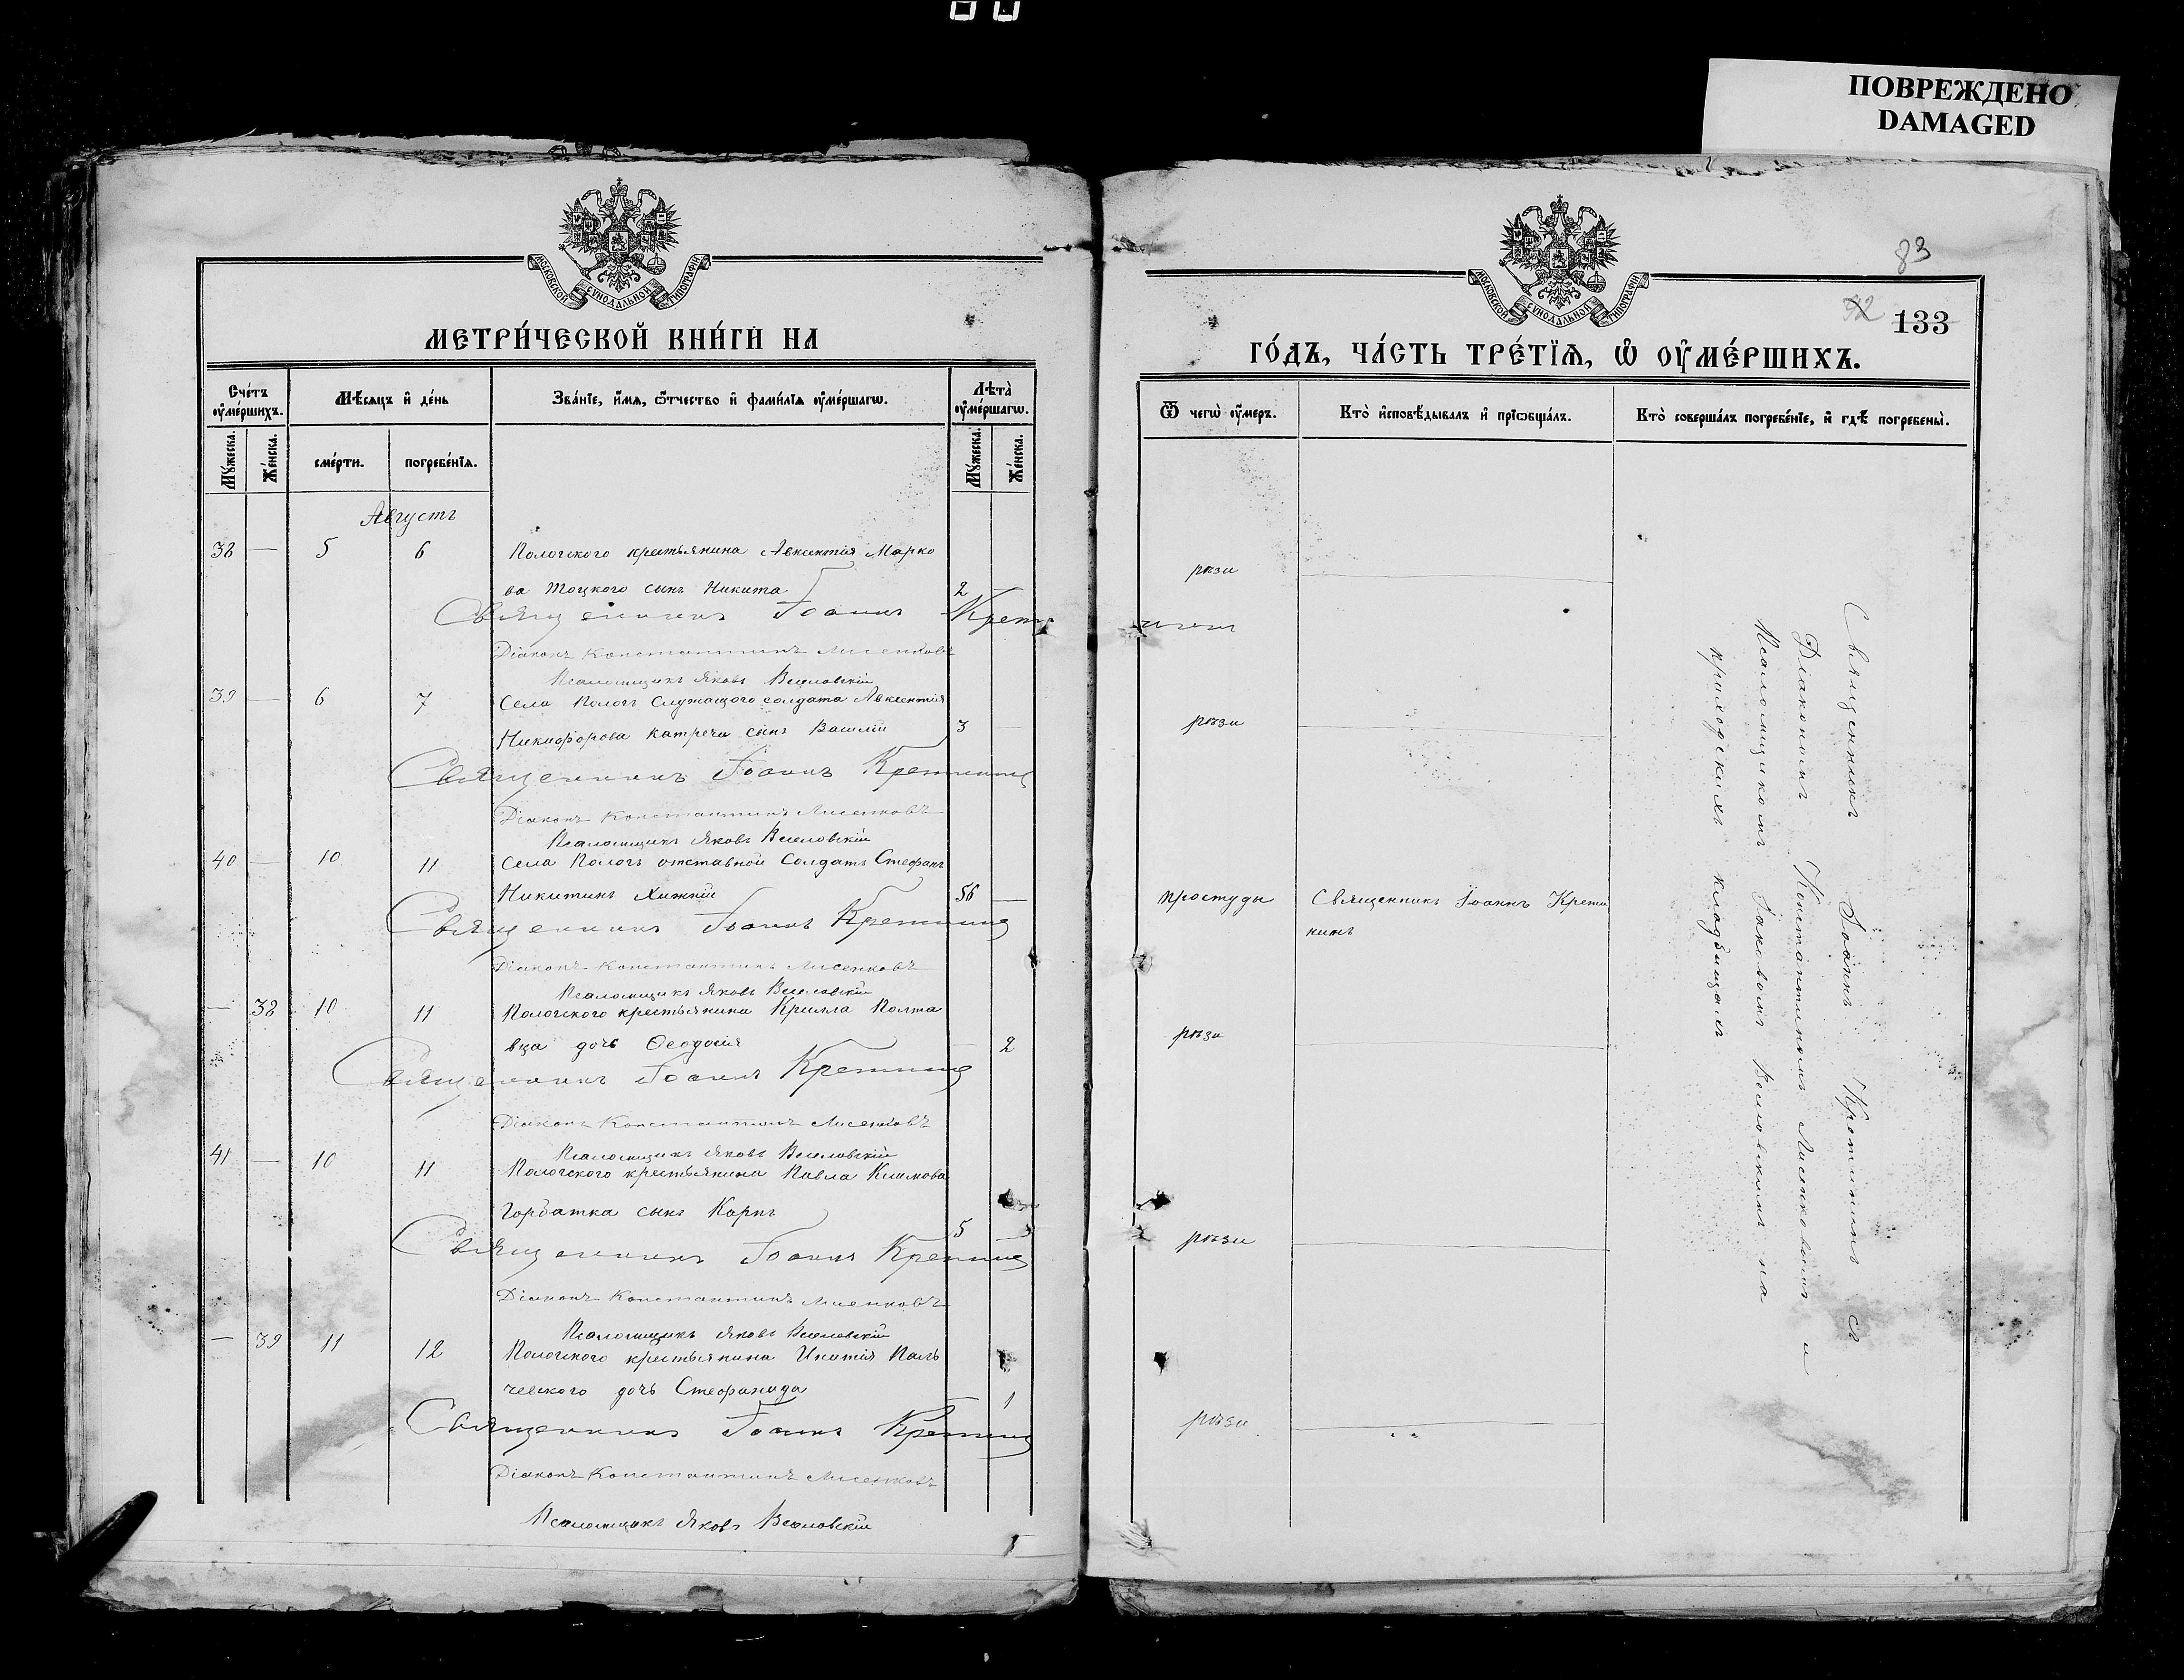 ПОВРЕЖДЕНО
DAMAGED
МОСКОВСКОЙ СѴНОДАЛЬНОЙ ТИПОГРАФІИ
МЕТРИ́ЧЕСКОЙ КНИ́ГИ НА
Сче́тъ ᲂу҆ме́ршихъ.
Мѣ́сяцъ и҆ де́нь
Зва́нїе, и҆́мѧ, ѻ҆́тчество и҆ фами́лїѧ ᲂу҆ме́ршагѡ.
Лѣта̀ ᲂу҆ме́ршагѡ.
Мꙋ́жеска.
Же́нска.
сме́рти.
погребе́нїѧ.
Мꙋ́жеска.
Же́нска.
Августъ
38 — 5 6 Пологского крестьянина Авксентія Марко
ва Тоцкого сынъ Никита 2
Священникъ Іоаннъ Кретининъ
Діаконъ Константинъ Лисенковъ
Псаломщикъ Яковъ Веселовскій
39 — 6 7 Села Пологъ Служащого солдата Авксентія
Никифорова Катречи сынъ Василій 3 —
Священникъ Іоаннъ Кретининъ
Діаконъ Константинъ Лисенковъ
Псаломщикъ Яковъ Веселовскій
40 — 10 11 Села Пологъ отставной Солдатъ Стефанъ
Никитинъ Хижній 56 —
Священникъ Іоаннъ Кретининъ
Діаконъ Константинъ Лисенковъ
Псаломщикъ Яковъ Веселовскій
— 38 10 11 Пологского крестьянина Крилла Полта
вца дочь Ѳеодосія — 2
Священникъ Іоаннъ Кретининъ
Діаконъ Константинъ Лисенковъ
Псаломщикъ Яковъ Веселовскій
41 — 10 11 Пологского крестьянина Павла Климова
Горбатка сынъ Карпъ 5 —
Священникъ Іоаннъ Кретининъ
Діаконъ Константинъ Лисенковъ
Псаломщикъ Яковъ Веселовскій
— 39 11 12 Пологского крестьянина Ипатія Паль
чевского дочь Стефанида — 1
Священникъ Іоаннъ Кретининъ
Діаконъ Константинъ Лисенковъ
Псаломщикъ Яковъ Веселовскій
83
92 133
МОСКОВСКОЙ СѴНОДАЛЬНОЙ ТИПОГРАФІИ
ГО́ДЪ, ЧА́СТЬ ТРЕ́ТЇѦ, Ѡ҆ ОУ҆МЕ́РШИХЪ.
Ѿ чегѡ̀ ᲂу҆́меръ.
Кто̀ и҆сповѣ́дывалъ и҆ прїѡбща́лъ.
Кто̀ соверша́лъ погребе́нїе, и҆ гдѣ̀ погребены̀.
рѣзи
рѣзи
простуды Священникъ Іоаннъ Крети
нинъ
рѣзи
рѣзи
рѣзи
Священникъ Іоаннъ Кретининъ съ
Діакономъ Константиномъ Лисенковымъ и
Псаломщикомъ Іаковомъ Веселовскимъ на
приходскихъ кладбищахъ